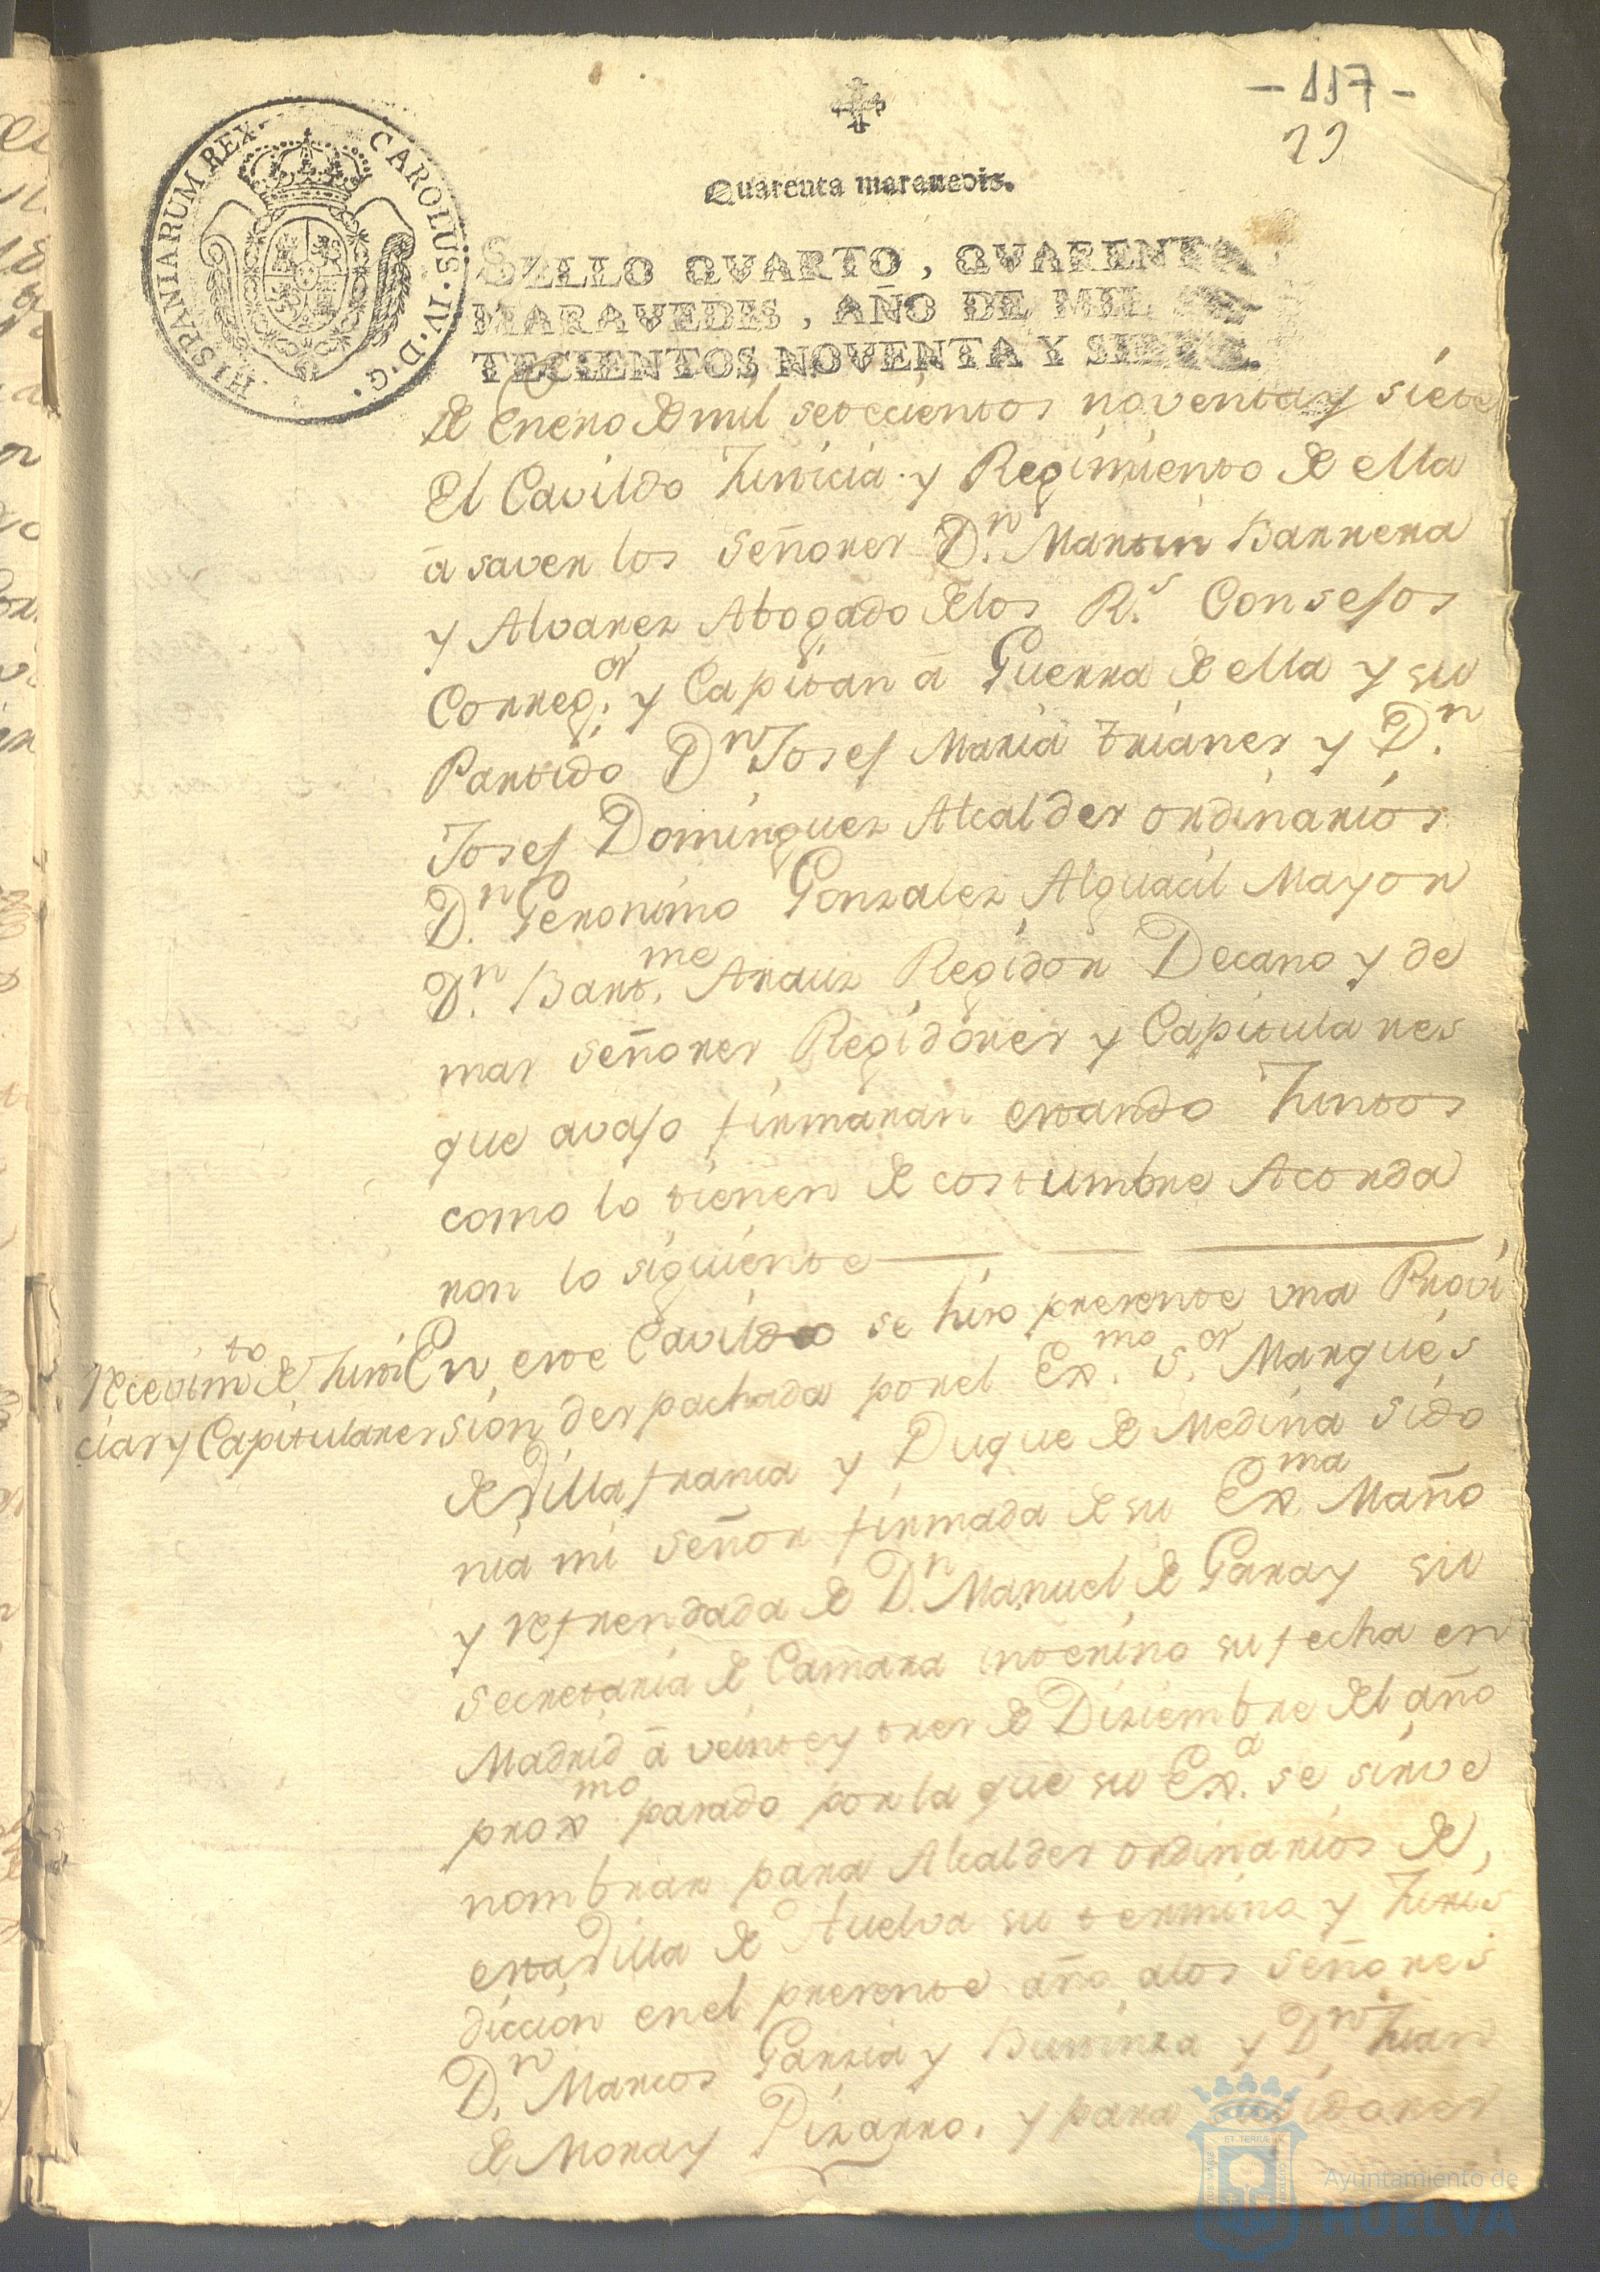 - 117 -
29
Quarenta marauedis.
HISPANIARUM REX. CAROLUS. IV. D. G.
SELLO QVARTO, QVARENTA
MARAVEDIS, AÑO DE MIL SE-
TECIENTOS NOVENTA Y SIETE.
de Enero de mil setecientos noventa y siete
El Cavildo Justicia y Regimiento de ella
â saver los señores Dn. Martin Barrera
y Alvarez Abogado de los Rs. Consejos
Correg.or y Capitan â Guerra de ella y su
Partido Dn Josef Maria trianes y Dn.
Josef Dominguez Alcaldes ordinarios
Dn. Geronimo Gonzalez Alguacil Mayor
Dn. Bart.me Arauz Regidor Decano y de
mas señores Regidores y Capitulares
que avajo firmaran estando Juntos
como lo tienen de costumbre Acorda
ron lo siguiente
Recevim.to de Justi
cias y Capitulares
En este Cavildo se hiso presente una Provi
sion despachada por el Ex.mo S.or Marques
de Villafranca y Duque de Medina Sido
nia mi señor firmada de su Ex.ma Maño
y refrendada de Dn. Manuel de Garay su
secretaria de Camara interino su fecha en
Madrid â veinte y tres de Diziembre del año
prox.mo pasado por la que su Ex.a se sirve
nombrar para Alcaldes ordinarios de,
esta Villa de Huelva su termino y Juris
diccion en el presente año a los señores
Dn. Marcos Garzia y Bustinza y Dn. Juan
de Mora y Pizarro. y para Regidores
ET TERRÆ
Ayuntamiento de
HUELVA